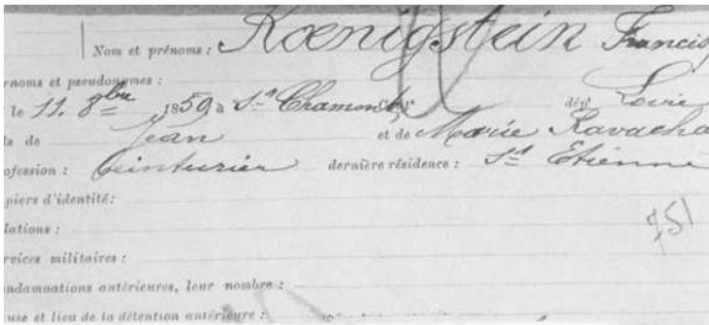 Nom et prénoms : Kœnigstein Francis
rnoms et pseudonymes :
le 11. 8bre 1859 à St Chamond dép. Loire
ls de Jean et de Marie Ravacha
ofession : teinturier dernière résidence : St Etienne
piers d'identité :
lations :
751
rvices militaires :
ndamnations antérieures, leur nombre :
use et lieu de la détention antérieure :